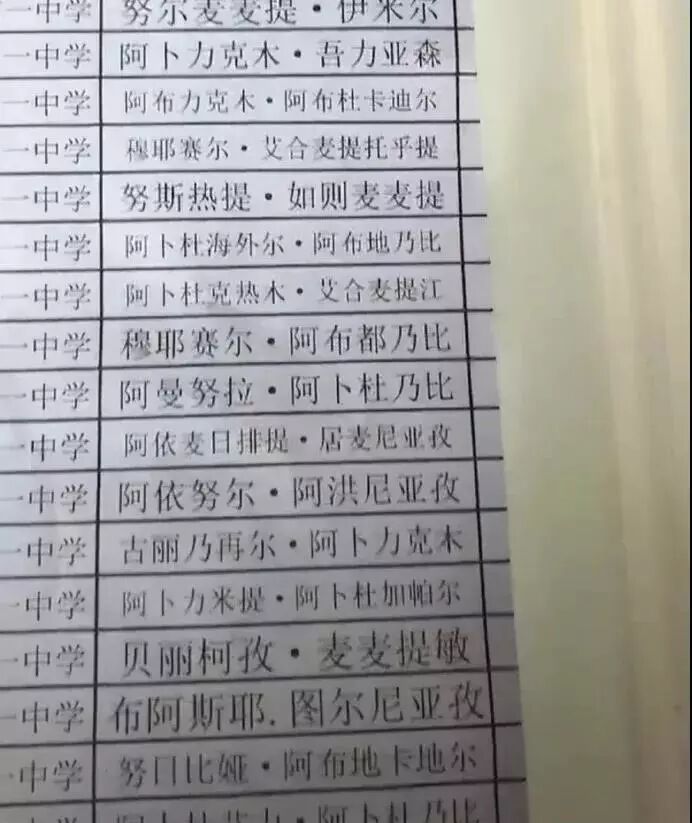 一中学 努尔麦麦提·伊米尔
一中学 阿卜力克木·吾力亚森
一中学 阿布力克木·阿布杜卡迪尔
一中学 穆耶赛尔·艾合麦提托乎提
一中学 努斯热提·如则麦麦提
一中学 阿卜杜海外尔·阿布地乃比
一中学 阿卜杜克热木·艾合麦提江
一中学 穆耶赛尔·阿布都乃比
一中学 阿曼努拉·阿卜杜乃比
一中学 阿依麦日排提·居麦尼亚孜
一中学 阿依努尔·阿洪尼亚孜
一中学 古丽乃再尔·阿卜力克木
一中学 阿卜力米提·阿卜杜加帕尔
一中学 贝丽柯孜·麦麦提敏
一中学 布阿斯耶.图尔尼亚孜
一中学 努日比娅·阿布地卡地尔
一中学